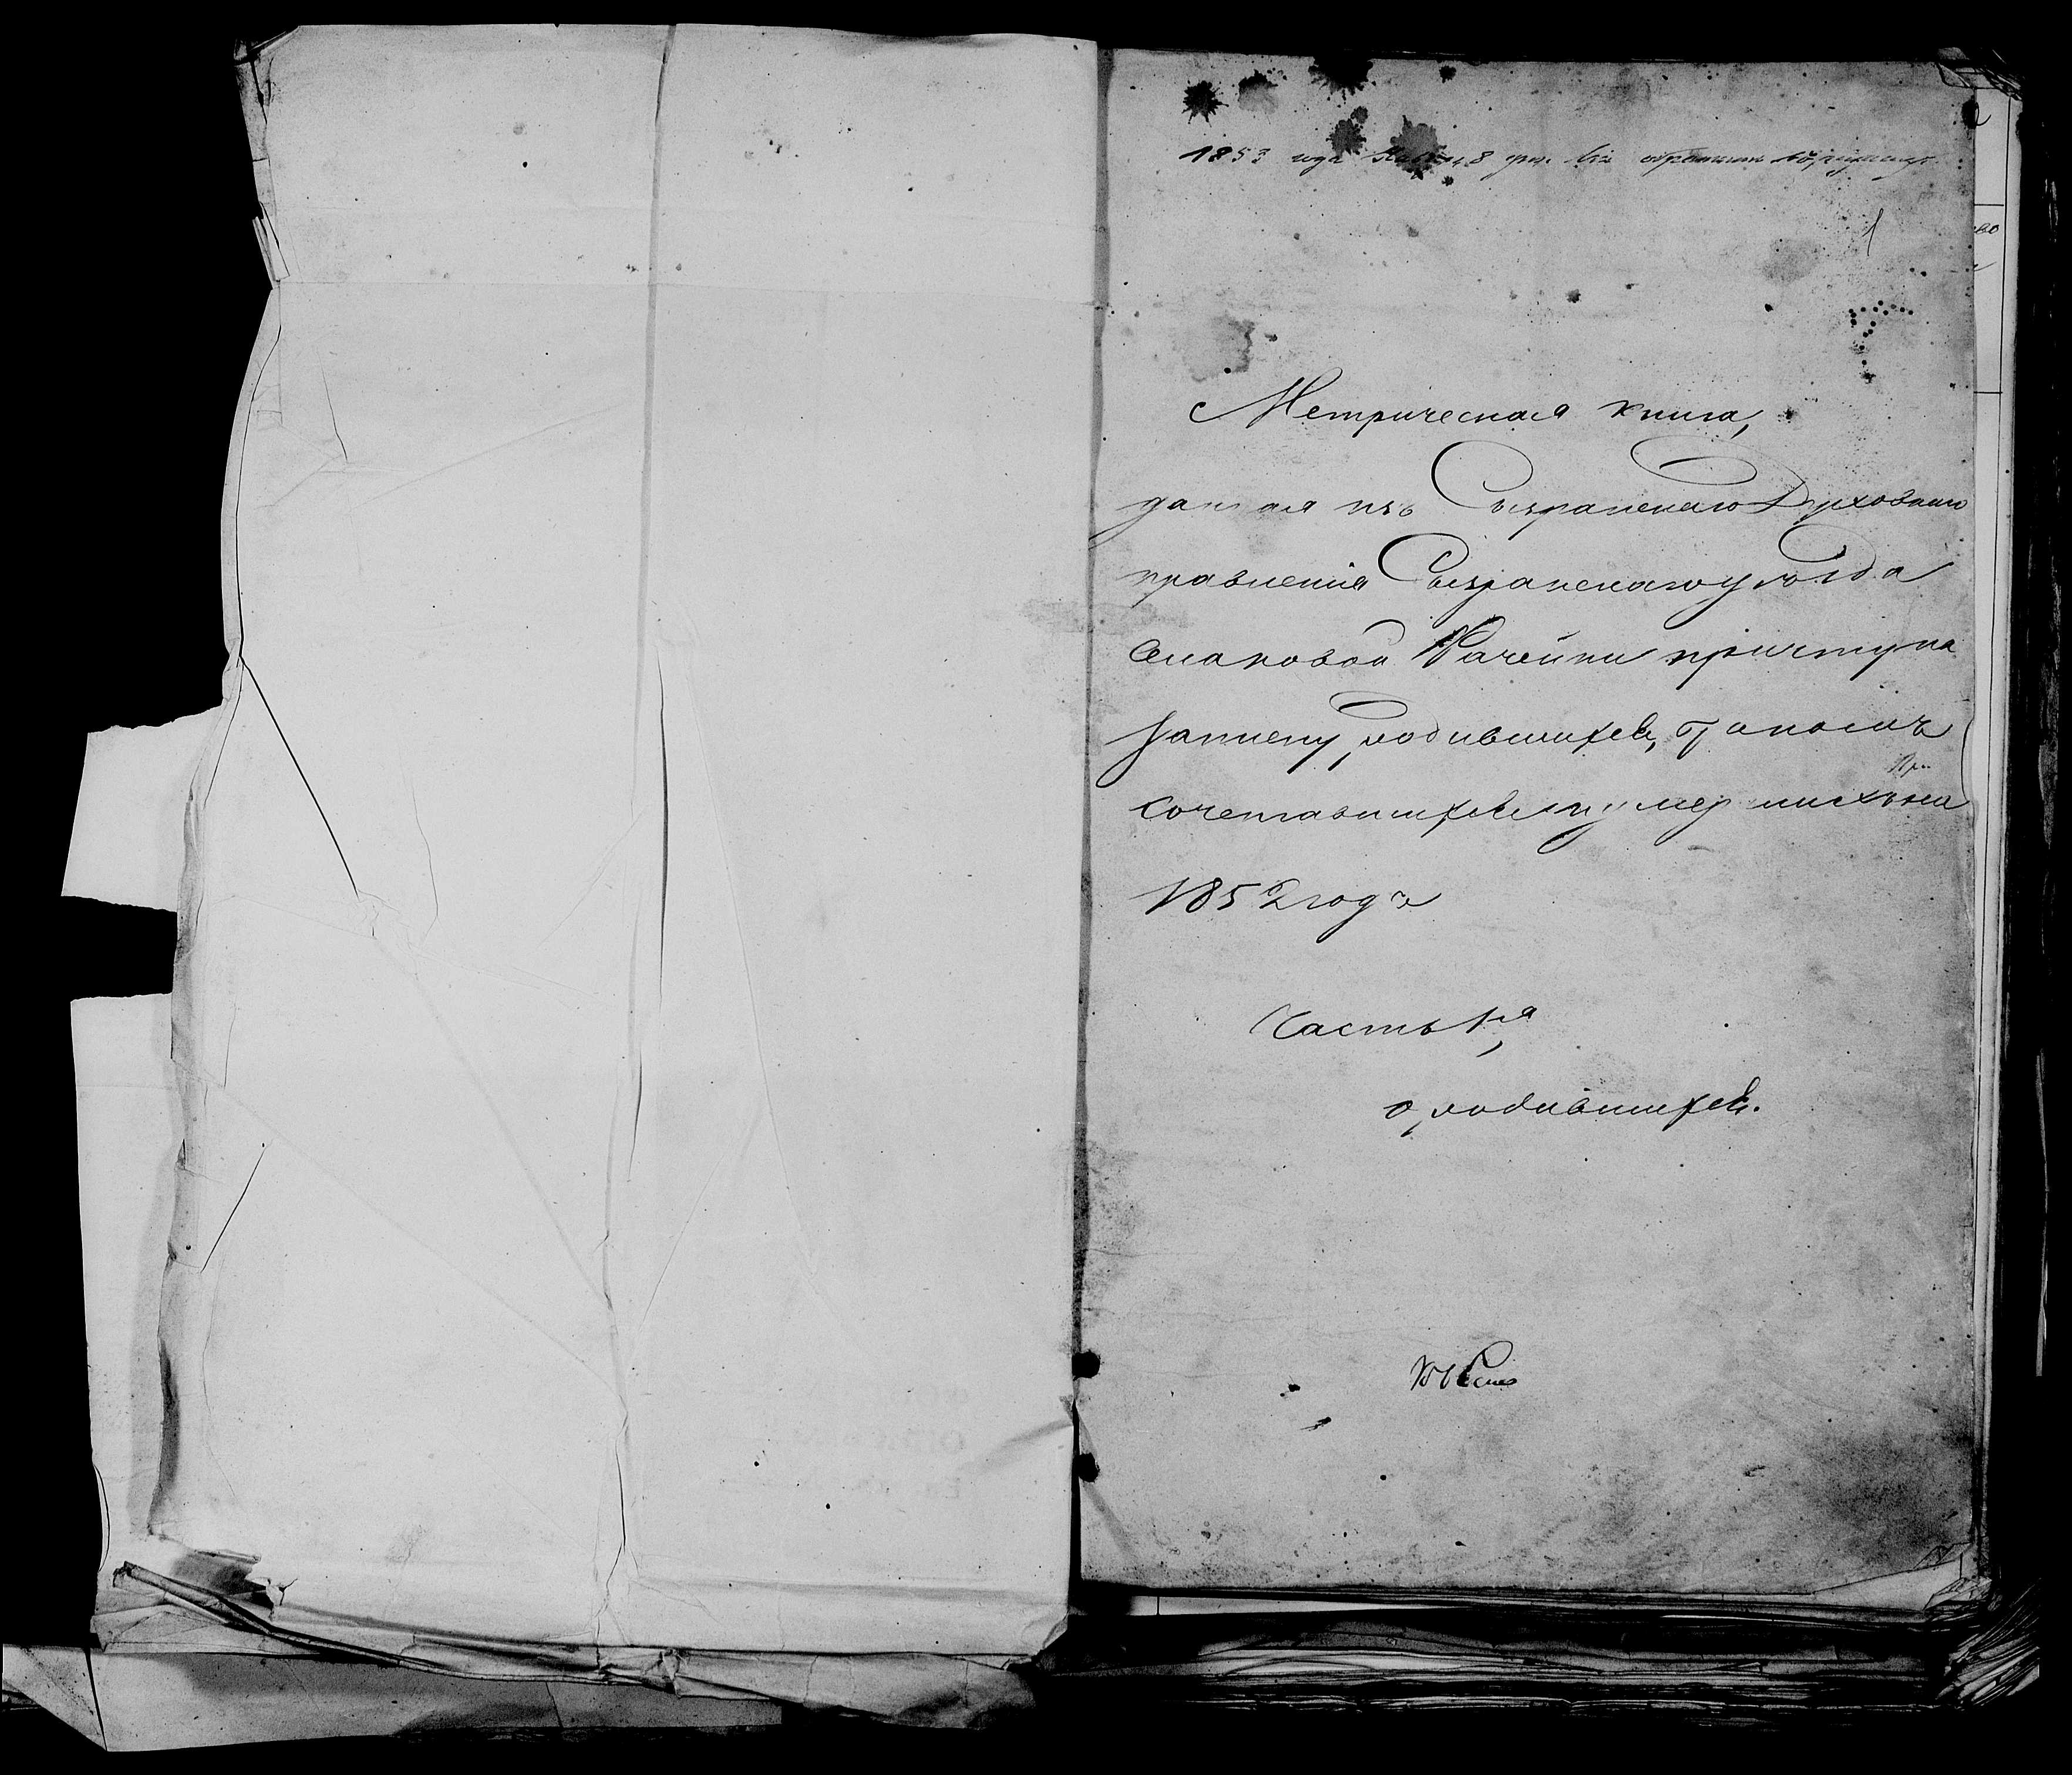 1853 года
1
Метрическая книга,
данная изъ Сызранскаго Духовнаго
правленія Сызранскаго уѣзда
Смаковой Рачейки причту на
записку, родившихся, бракомъ
сочетавшихся и умершихъ на
1852 годъ
Часть 1я,
о родившихся.